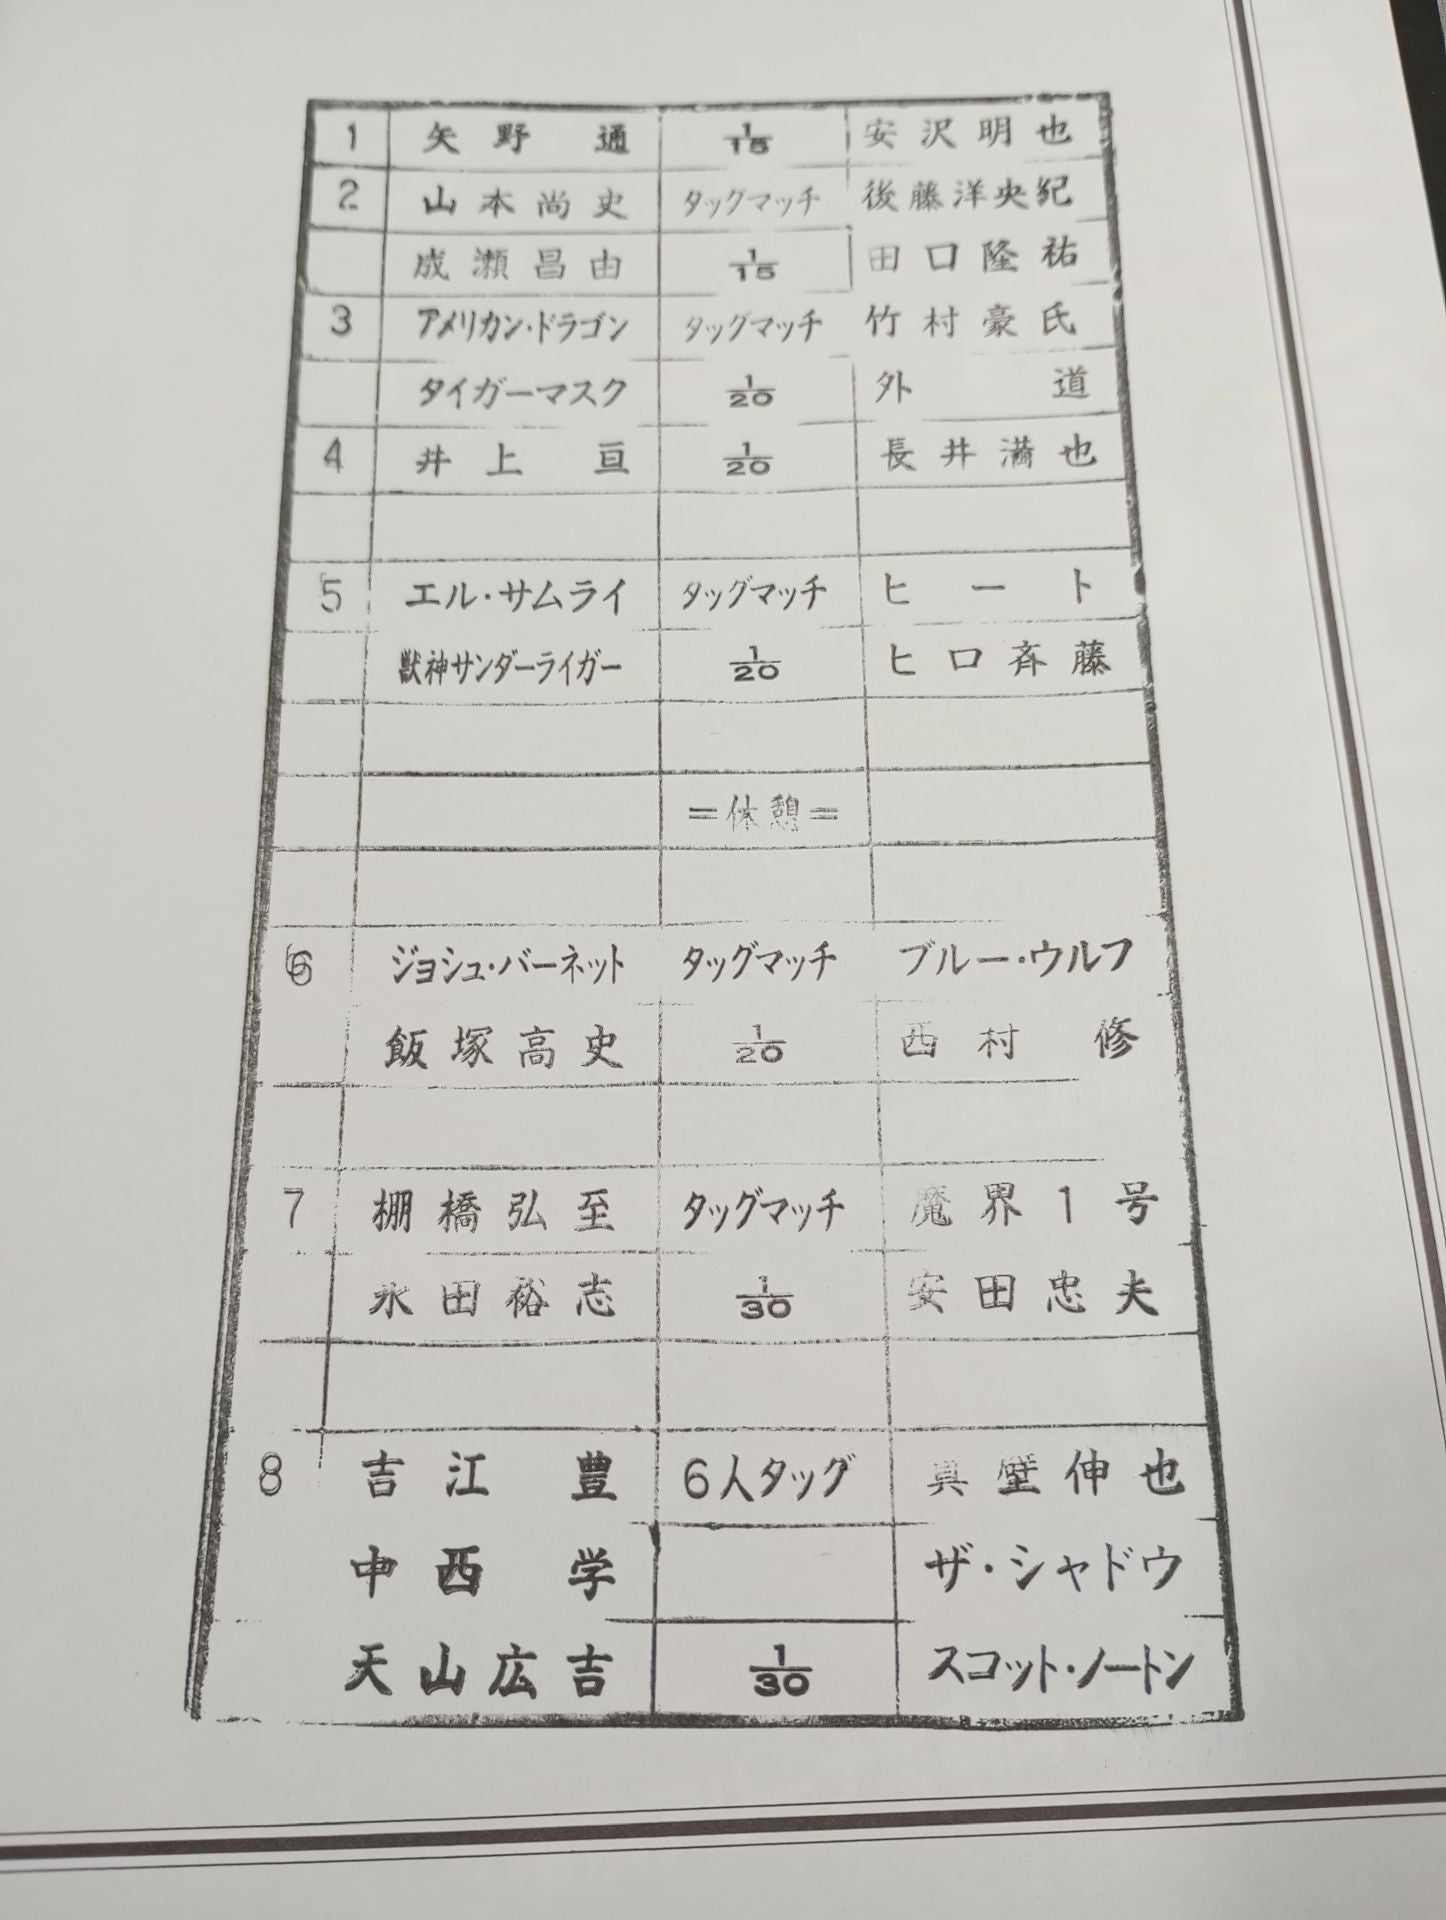 1 矢野 通 1/15 安沢明也
2 山本尚史 タッグマッチ 後藤洋央紀
成瀬昌由 1/15 田口隆祐
3 アメリカン・ドラゴン タッグマッチ 竹村豪氏
タイガーマスク 1/20 外 道
4 井上 亘 1/20 長井満也
5 エル・サムライ タッグマッチ ヒート
獣神サンダーライガー 1/20 ヒロ斉藤
=休憩=
6 ジョシュ・バーネット タッグマッチ ブルー・ウルフ
飯塚高史 1/20 西村 修
7 棚橋弘至 タッグマッチ 魔界1号
永田裕志 1/30 安田忠夫
8 吉江 豊 6人タッグ 真壁伸也
中西 学 ザ・シャドウ
天山広吉 1/30 スコット・ノートン